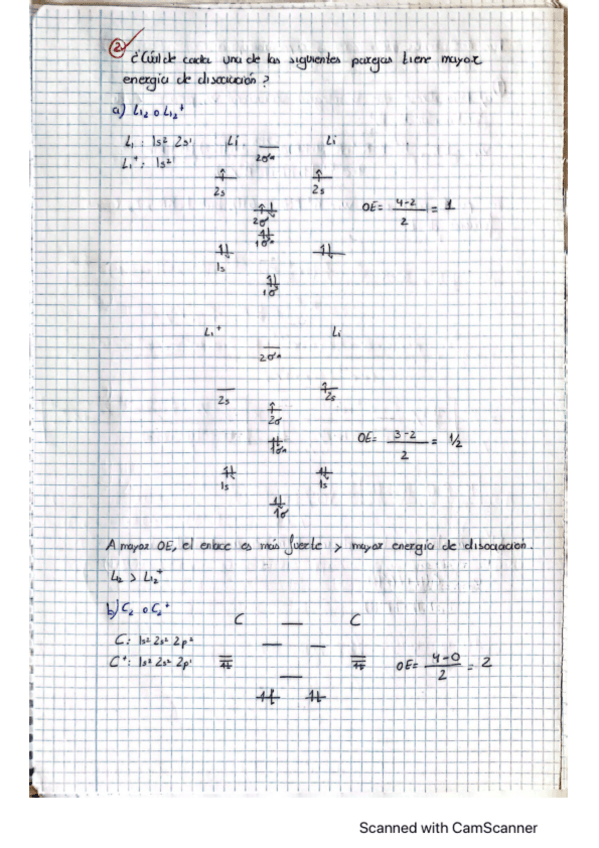 2
¿Cuál de cada una de las siguientes parejas tiene mayor
energía de disociación?
a) Li₂ o Li₂⁺
Li : 1s² 2s¹ Li Li
Li⁺: 1s² 2σ*
2s 2s
OE= 4-2 / 2 = 1
2σ
1σ*
1s
1σ
Li⁺ Li
2σ*
2s 2s
2σ
OE= 3-2 / 2 = 1/2
1σ*
1s 1s
1σ
A mayor OE, el enlace es más fuerte y mayor energía de disociación.
Li₂ > Li₂⁺
b) C₂ o C₂⁺
C C
C: 1s² 2s² 2p²
C⁺: 1s² 2s² 2p¹ OE= 4-0 / 2 = 2
Scanned with CamScanner